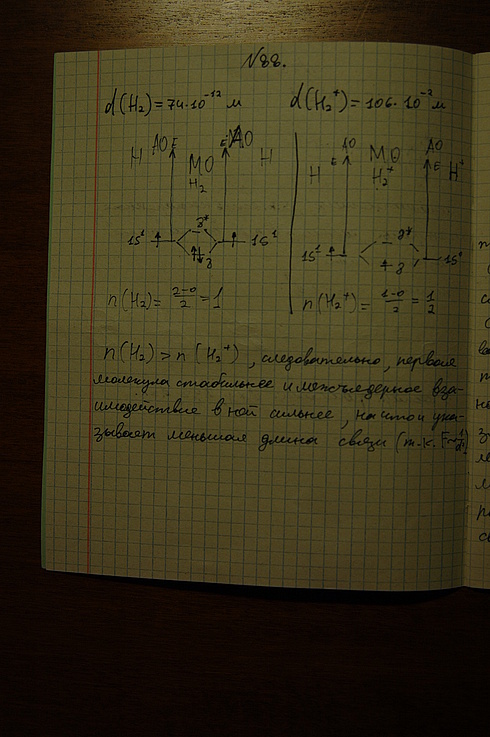 N88.
d(H₂) = 74·10⁻¹² м
d(H₂⁺) = 106·10⁻² м
H АО E МО H₂ E АО H
H E АО МО H₂⁺ АО E H⁺
1s¹ 1s¹
1s¹ 1s⁰
n(H₂) = (2-0)/2 = 1
n(H₂⁺) = (1-0)/2 = 1/2
n(H₂) > n(H₂⁺), следовательно, первая
молекула стабильнее и межъядерное вза-
имодействие в ней сильнее, на что и ука-
зывает меньшая длина связи (т.к. F~